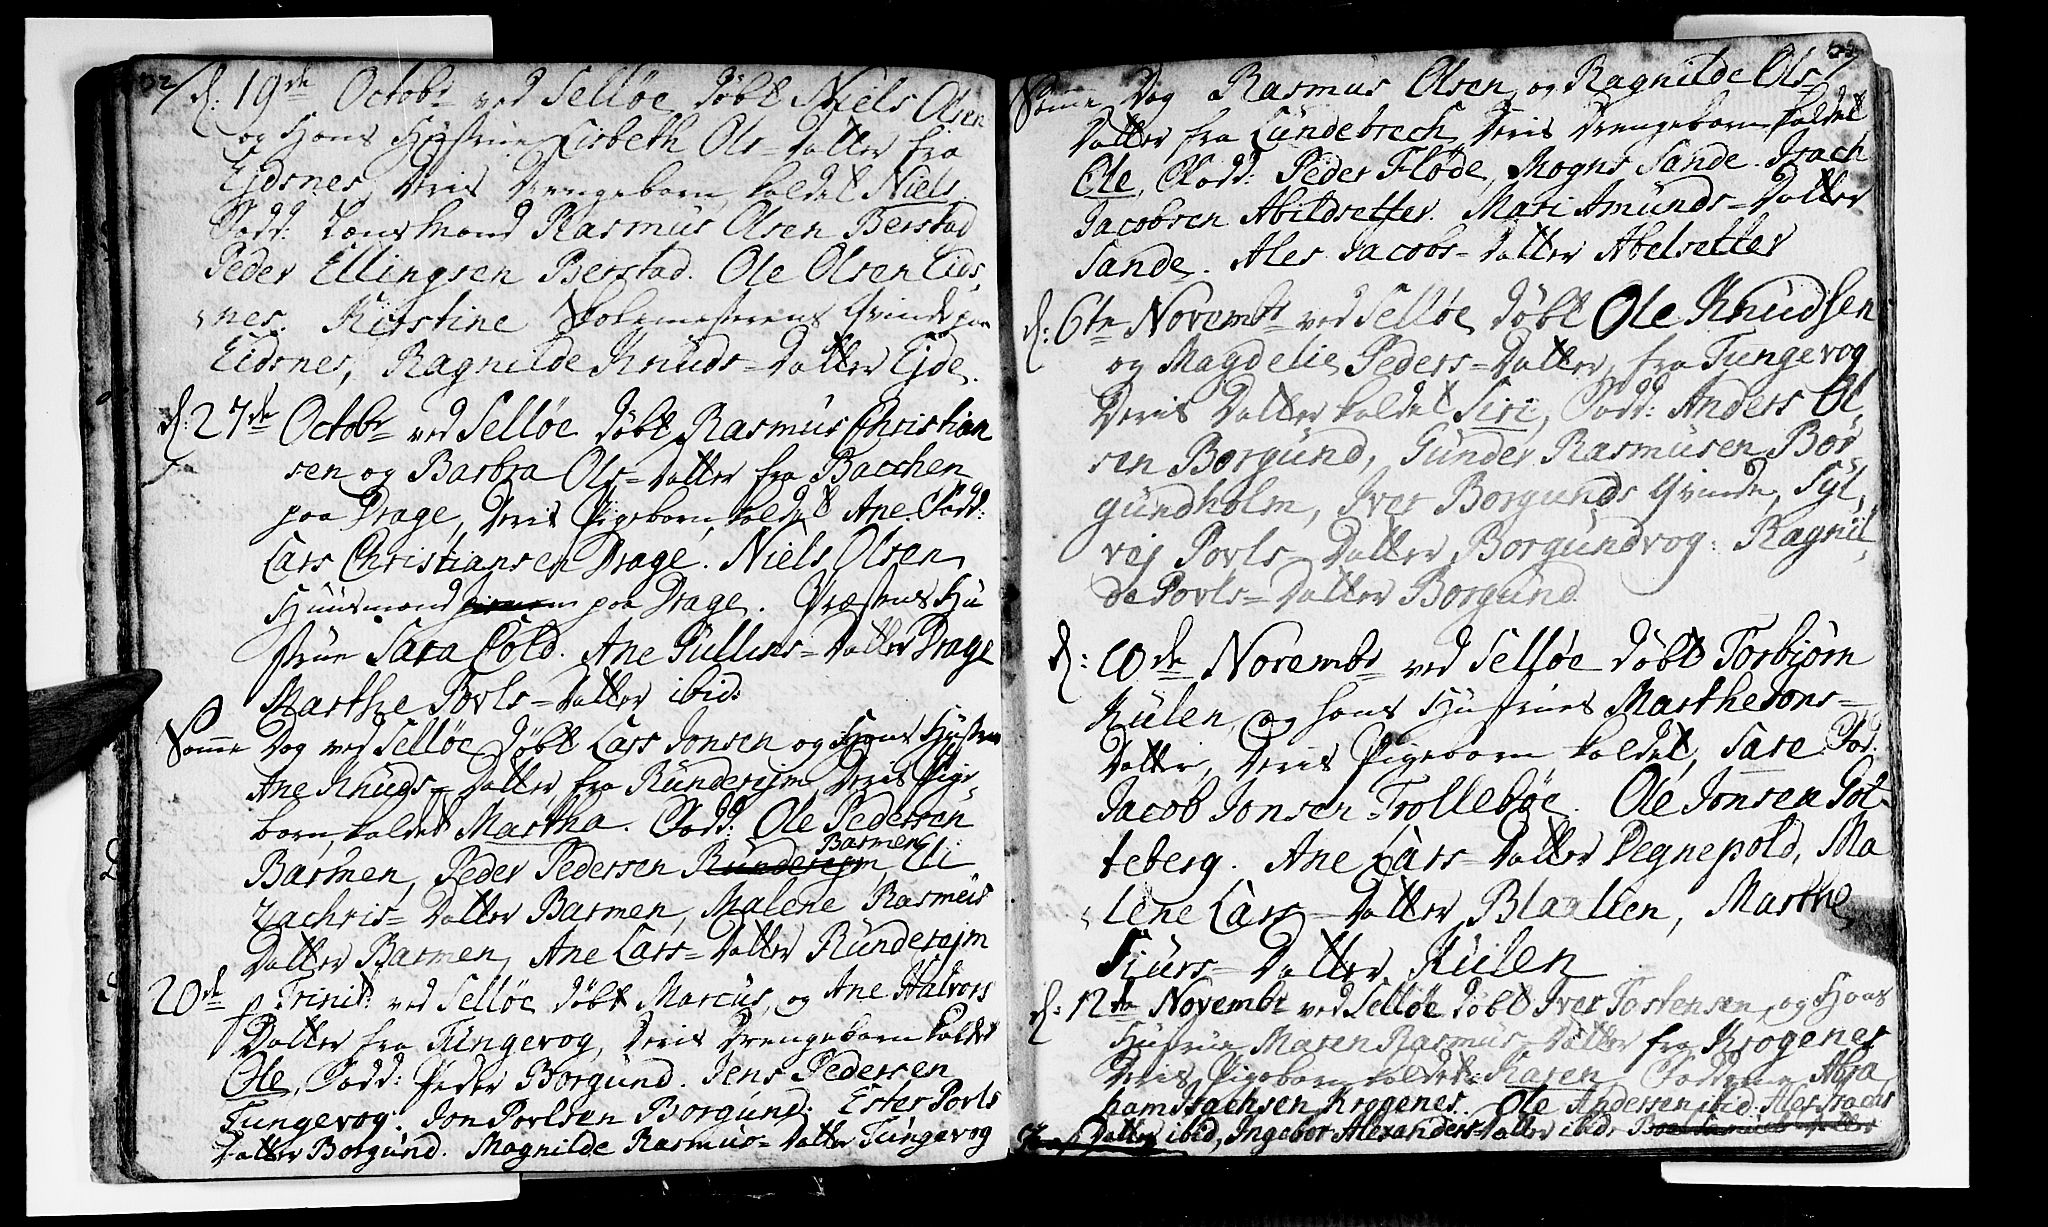 52
d: 19de Octobr ved Selløe døbt Niels Olsen
og Hans Hustrue Lisbeth Ols=Datter fra
Ejdsnes, Deris Drengebarn kaldet Niels
Fadd: Lens Mand Rasmus Olsen Berstad
Peder Ellingsen Berstad. Ole Olsen Eids,
nes. Kirstine Skolemesterens Qvinde paa
Eidsnes, Ragnilde Knuds=Datter Ejde.
d: 27de Octobr ved Selløe døbt Rasmus Christian
sen og Barbra Ols=Datter fra Bacchen
paa Drage, Deris Pigebarn kaldet Ane. Fadd:
Lars Christiansen Drage. Niels Olsen
Huusmand paa Drage. Præstens Hu
strue Sara Cold. Ane Gullics=Datter Drage
Marthe Povls=Datter ibid:
Samme Dag ved Selløe døbt Lars Jonsen og Hans Hustrue
Ane Knuds=Datter fra Runderejm Deris Pige,
barn, kaldet Martha. Fadd: Ole Pedersen
Barmen, Peder Pedersen Runderejm Barmen, Eli
Zachris=Datter Barmen, Malene Rasmus
Datter Barmen, Ane Lars=Datter Runderejm
20de p Trinit: ved Selløe døbt Marcus, og Ane Halvors
Datter fra Tungevog, Deris Drengebarn kaldet
Ole, Fadd: Peder Borgund. Jens Pedersen
Tungevog. Jon Povlsen Borgund. Ester Povls
Datter Borgund. Magnilde Rasmus=Datter Tungevog
Samme Dag Rasmus Olsen og Ragnilde Ols=
Datter fra Lundebrech Deris Drengebarn kaldet
Ole, Fadd: Peder Flöde, Mogns Sande. Isach
Jacobsen Abildsetter. Mari Amunds=Datter
Sande. Ales Jacobs=Datter Abelsetter
d: 6te Novembr ved Selløe døbt Ole Knudsen
og Magdelie Peders=Datter, fra Tungevog
Deris Datter kaldet Siri, Fadd: Anders Ol,
sen Borgund, Gunder Rasmusen Bor
gundholm, Iver Borgunds Qvinde, Syl,
vej Povls=Datter Borgundvog. Ragnil,
de Povls=Datter Borgund
d: 10de Novembr ved Selløe døbt Torbjørn
Kulen, og hans Hustrues Marthe Jons=
Datter, Deris Pigebarn kaldet, Sare. Fad:
Jacob Jonsen Trollebøe. Ole Jonsen Got
teberg. Ane Lars=Datter Degnepold, Ma
lene Lars=Datter Blaalien, Marthe
Siurs=Datter Kulen
d: 12te Novembr ved Selløe døbt Iver Tostensen, og Hans
Hustrue Maren Rasmus=Datter fra Krogenes
Deris Pigebarn kaldet Karen Fadderne Abra,
ham Isachsen Krogenes. Ole Andersen ibid. Ales Isachs
Datter ibid, Ingebor Alexanders=Datter ibid.